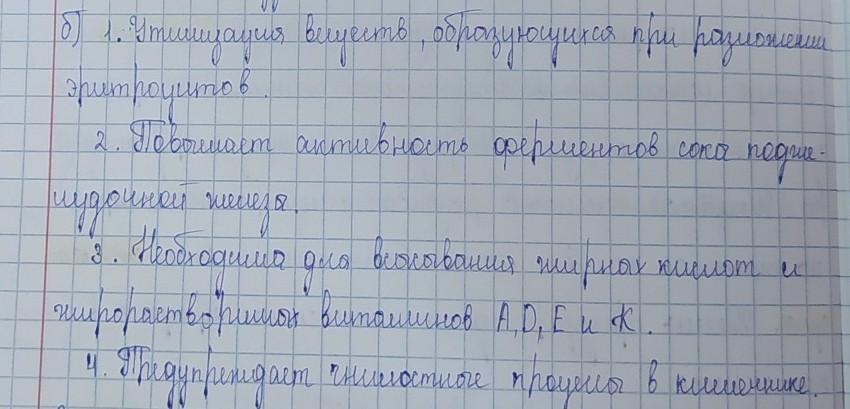 б) 1. Утилизация веществ, образующихся при разложении
эритроцитов.
2. Повышает активность ферментов сока подже-
лудочной железы.
3. Необходима для всасывания жирных кислот и
жирорастворимых витаминов А, D, Е и К.
4. Предупреждает гнилостные процессы в кишечнике.